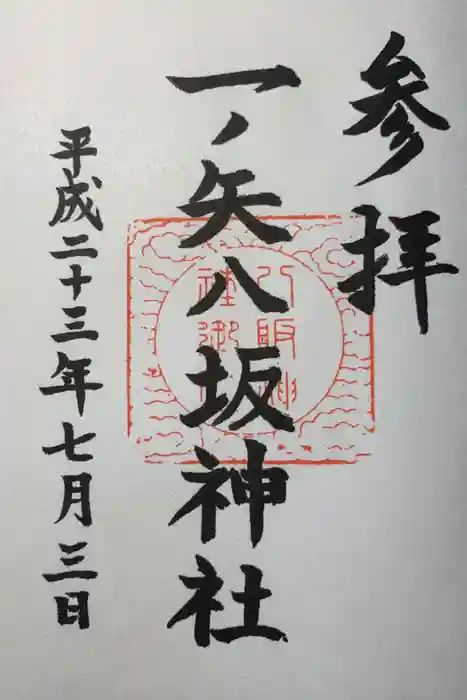 参拝
一ノ矢八坂神社
平成二十三年七月三日